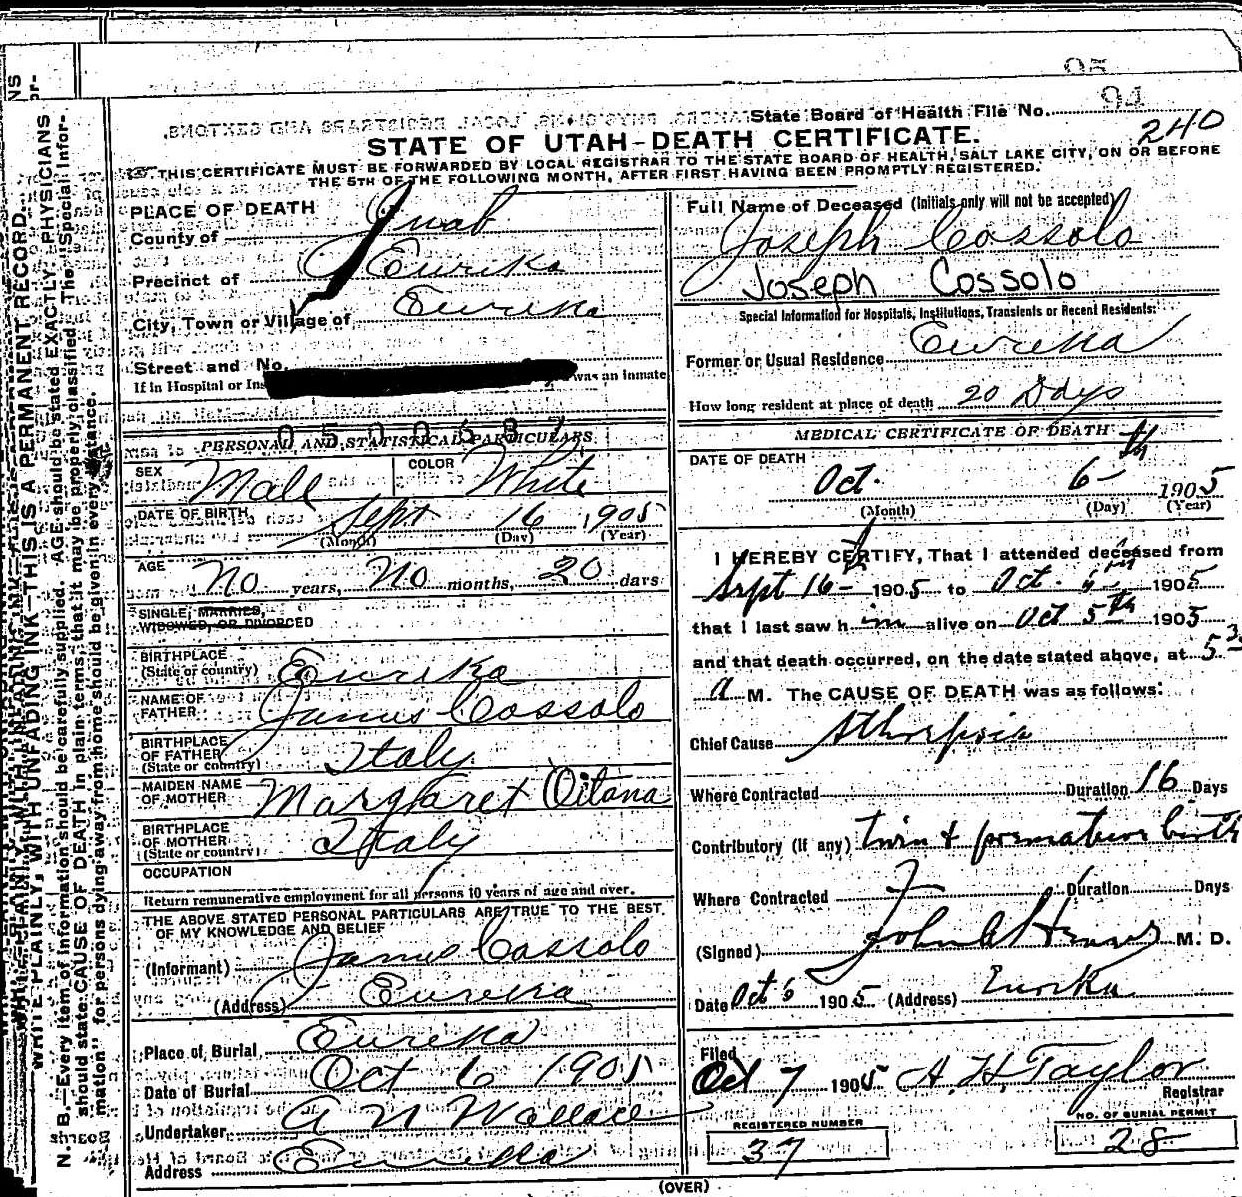 95
94
State Board of Health File No.
240
STATE OF UTAH-DEATH CERTIFICATE.
THIS CERTIFICATE MUST BE FORWARDED BY LOCAL REGISTRAR TO THE STATE BOARD OF HEALTH, SALT LAKE CITY, ON OR BEFORE
THE 5TH OF THE FOLLOWING MONTH, AFTER FIRST HAVING BEEN PROMPTLY REGISTERED.
PLACE OF DEATH
County of Juab
Precinct of Eureka
City, Town or Village of Eureka
Street and No.
If in Hospital or Ins was an inmate
0500687
PERSONAL AND STATISTICAL PARTICULARS
SEX Male COLOR White
DATE OF BIRTH Sept 16 1905
(Month) (Day) (Year)
AGE No years, No months, 20 days
SINGLE, MARRIED,
WIDOWED, OR DIVORCED
BIRTHPLACE
(State or country) Eureka
NAME OF
FATHER James Cossolo
BIRTHPLACE
OF FATHER
(State or country) Italy
MAIDEN NAME
OF MOTHER Margaret Oitana
BIRTHPLACE
OF MOTHER
(State or country) Italy
OCCUPATION
Return remunerative employment for all persons 10 years of age and over.
THE ABOVE STATED PERSONAL PARTICULARS ARE TRUE TO THE BEST
OF MY KNOWLEDGE AND BELIEF
(Informant) James Cossolo
(Address) Eureka
Place of Burial Eureka
Date of Burial Oct 6 1905
Undertaker A N Wallace
Address Eureka
Full Name of Deceased (Initials only will not be accepted)
Joseph Cossolo
Joseph Cossolo
Special Information for Hospitals, Institutions, Transients or Recent Residents:
Former or Usual Residence Eureka
How long resident at place of death 20 Days
MEDICAL CERTIFICATE OF DEATH
DATE OF DEATH
Oct. 6th 1905
(Month) (Day) (Year)
I HEREBY CERTIFY, That I attended deceased from
Sept 16th 1905 to Oct. 6th 1905
that I last saw him alive on Oct 5th 1905
and that death occurred, on the date stated above, at 5 30
a M. The CAUSE OF DEATH was as follows:
Chief Cause Athrepsia
Where Contracted Duration 16 Days
Contributory (if any) twin & premature birth
Where Contracted Duration Days
(Signed) John M. D.
Date Oct 6 1905 (Address) Eureka
Filed
Oct 7 1905 A. H. Taylor
Registrar
REGISTERED NUMBER
37
NO. OF BURIAL PERMIT
28
(OVER)
WRITE PLAINLY, WITH UNFADING INK-THIS IS A PERMANENT RECORD.
N. B.-Every item of information should be carefully supplied. AGE should be stated EXACTLY. PHYSICIANS
should state CAUSE OF DEATH in plain terms, that it may be properly classified. The "Special Infor-
mation" for persons dying away from home should be given in every instance.